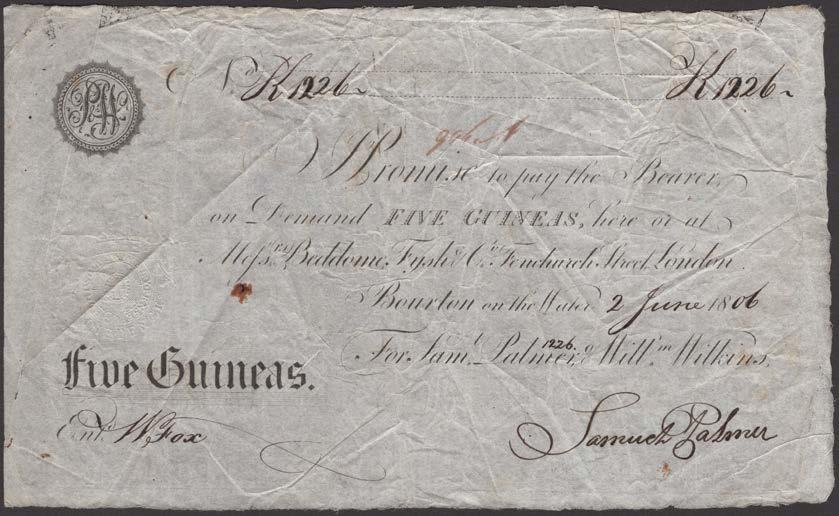 No. K1226 K1226
I Promise to pay the Bearer
on Demand FIVE GUINEAS, here or at
Messrs. Beddome, Fysh & Co. Fenchurch Street London.
Bourton on the Water 2 June 1806
1226.
For Saml. Palmer, & Willm. Wilkins.
Five Guineas.
Entd. W, Fox
Samuel Palmer